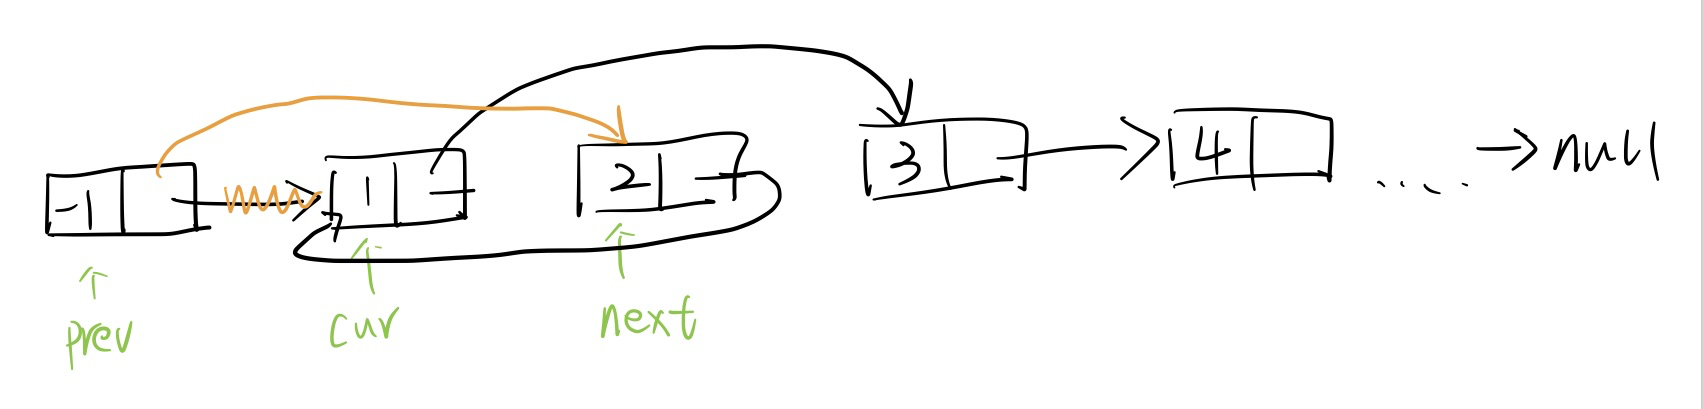 -1 1 2 3 4 ..... null
prev cur next